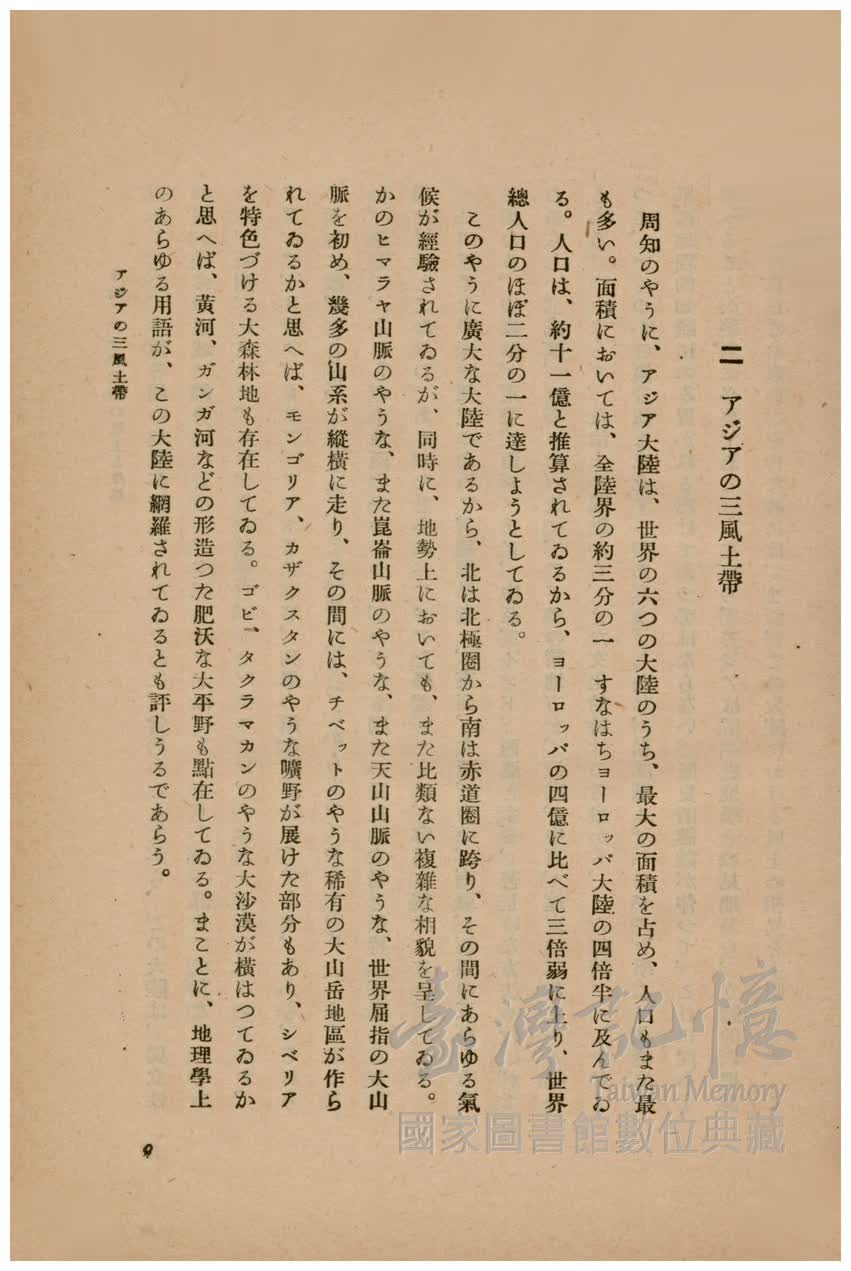 二　アジアの三風土帶
周知のやうに、アジア大陸は、世界の六つの大陸のうち、最大の面積を占め、人口もまた最
も多い。面積においては、全陸界の約三分の一　すなはちヨーロッパ大陸の四倍半に及んでゐ
る。人口は、約十一億と推算されてゐるから、ヨーロッパの四億に比べて三倍弱に上り、世界
總人口のほぼ二分の一に達しようとしてゐる。
このやうに廣大な大陸であるから、北は北極圈から南は赤道圈に跨り、その間にあらゆる氣
候が經驗されてゐるが、同時に、地勢上においても、また比類ない複雜な相貌を呈してゐる。
かのヒマラヤ山脈のやうな、また崑崙山脈のやうな、また天山山脈のやうな、世界屈指の大山
脈を初め、幾多の山系が縱橫に走り、その間には、チベットのやうな稀有の大山岳地區が作ら
れてゐるかと思へば、モンゴリア、カザクスタンのやうな曠野が展けた部分もあり、シベリア
を特色づける大森林地も存在してゐる。ゴビ、タクラマカンのやうな大沙漠が橫はつてゐるか
と思へば、黃河、ガンガ河などの形造つた肥沃な大平野も點在してゐる。まことに、地理學上
のあらゆる用語が、この大陸に網羅されてゐるとも評しうるであらう。
アジアの三風土帶
9
臺灣記憶
Taiwan Memory
國家圖書館數位典藏